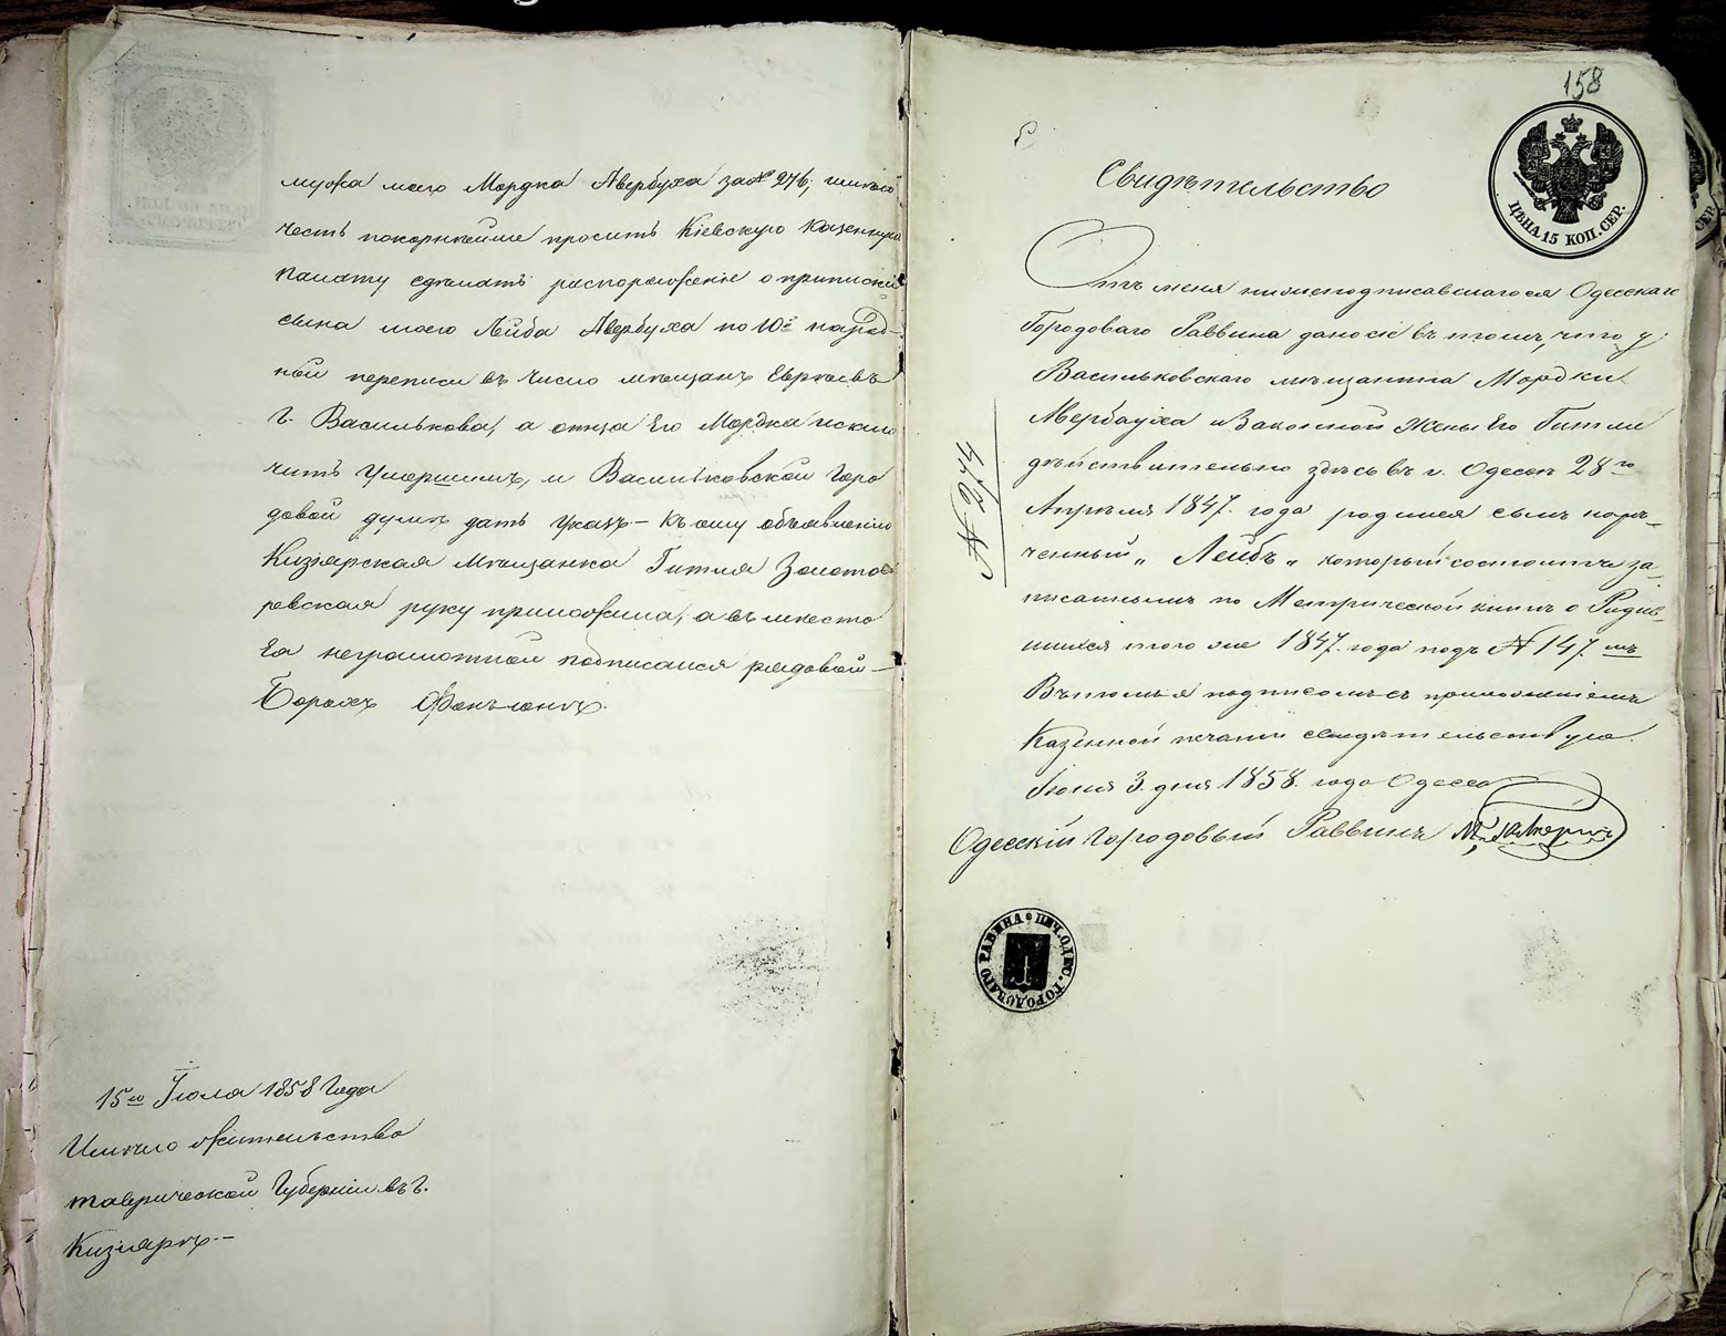 мужа моего Мордка Авербуха за № 276, имѣю
честь покорнѣйше просить Кіевскую Казенную
палату сдѣлать распоряженіе о припискѣ
сына моего Лейба Авербуха по 10й народ-
ной переписи въ число мѣщанъ Евреевъ
г. Василькова, а отца Его Мордка исклю
чить умершимъ, и Васильковской Горо
довой думѣ дать указъ – Къ сему объявленію
Кизіярская Мѣщанка Гитля Золото
ревская руку приложила, а въ мѣсто
Ея неграмотной подписался рядовой –
Борохъ
15го Іюля 1858 Года
Имѣю жительство
таврической Губерніи въ г.
Кизіярѣ.–
158
ЦѢНА 15 КОП. СЕР.
Свидѣтельство
Отъ меня нижеподписавшагося Одесскаго
Городоваго Раввина дано сіе въ томъ, что у
Васильковскаго мѣщанина Мордки
Авербауха и Законной Жены Его Гитли
дѣйствительно здѣсь въ г. Одессѣ 28го
Апрѣля 1847. года родился сынъ наре-
ченный „ Лейбъ „ который состоитъ за-
писаннымъ по Метрической книгѣ о Родив-
шихся того же 1847. года подъ № 147. мъ
Въ томъ я подписомъ съ приложеніемъ
Казенной печати свидѣтельствую.
Іюня 3. дня 1858. года Одесса
Одесскій Городовый Раввинъ
№ 274
ПЕЧ. ОДЕС. ГОРОДОВАГО РАВИНА